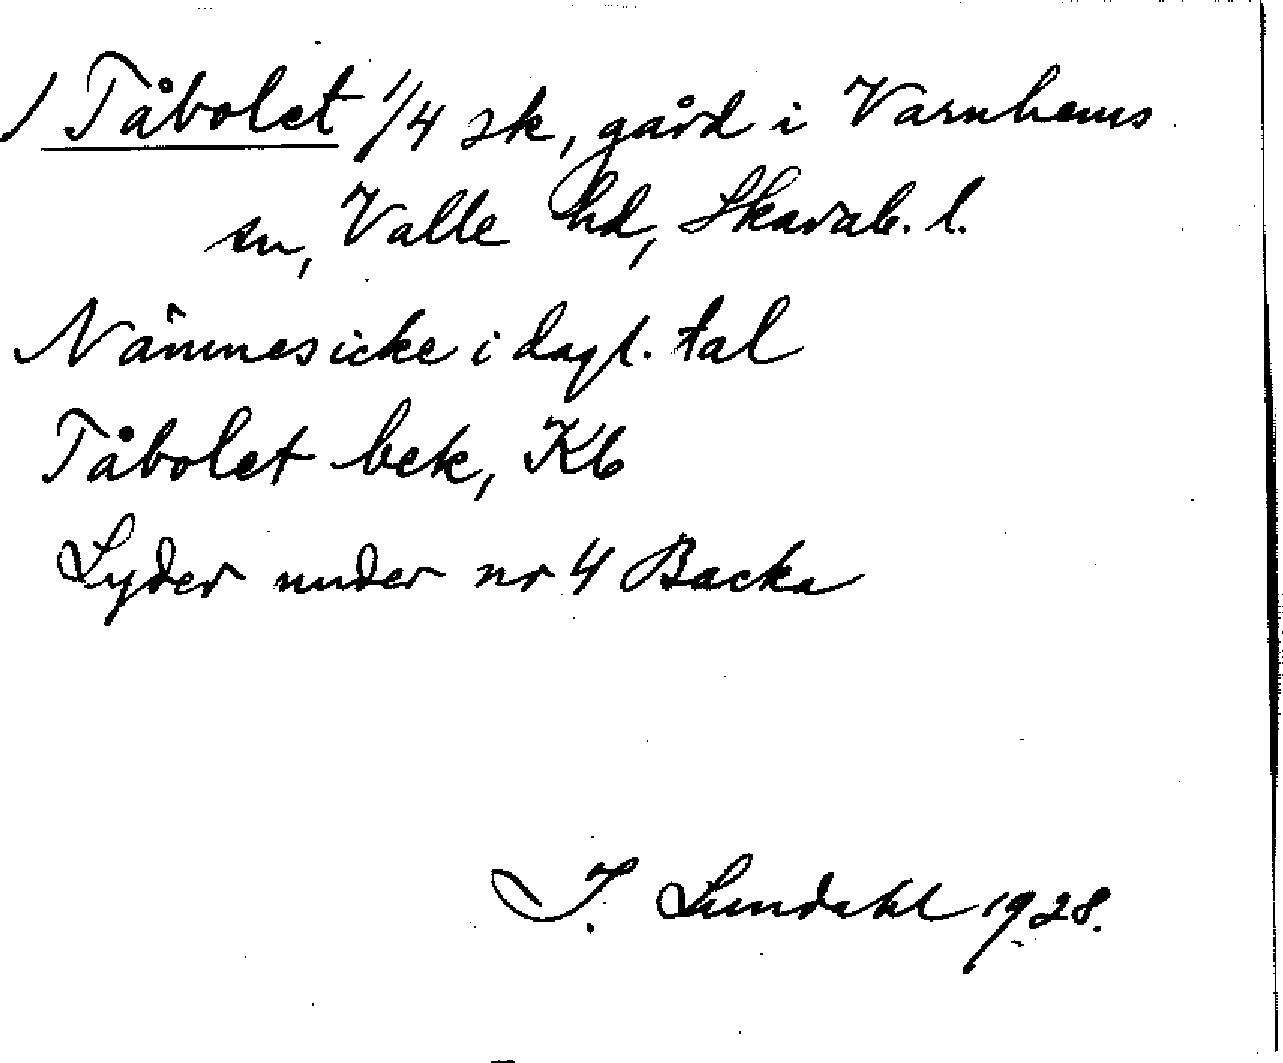 / Tåbolet 1/4 sk, gård i Varnhems
sn, Valle hd, Skarab. l.
Nämnes icke i dagl. tal
Tåbolet bek, Kb
Lyder under nr 4 Backa
I. Lundahl 1928.